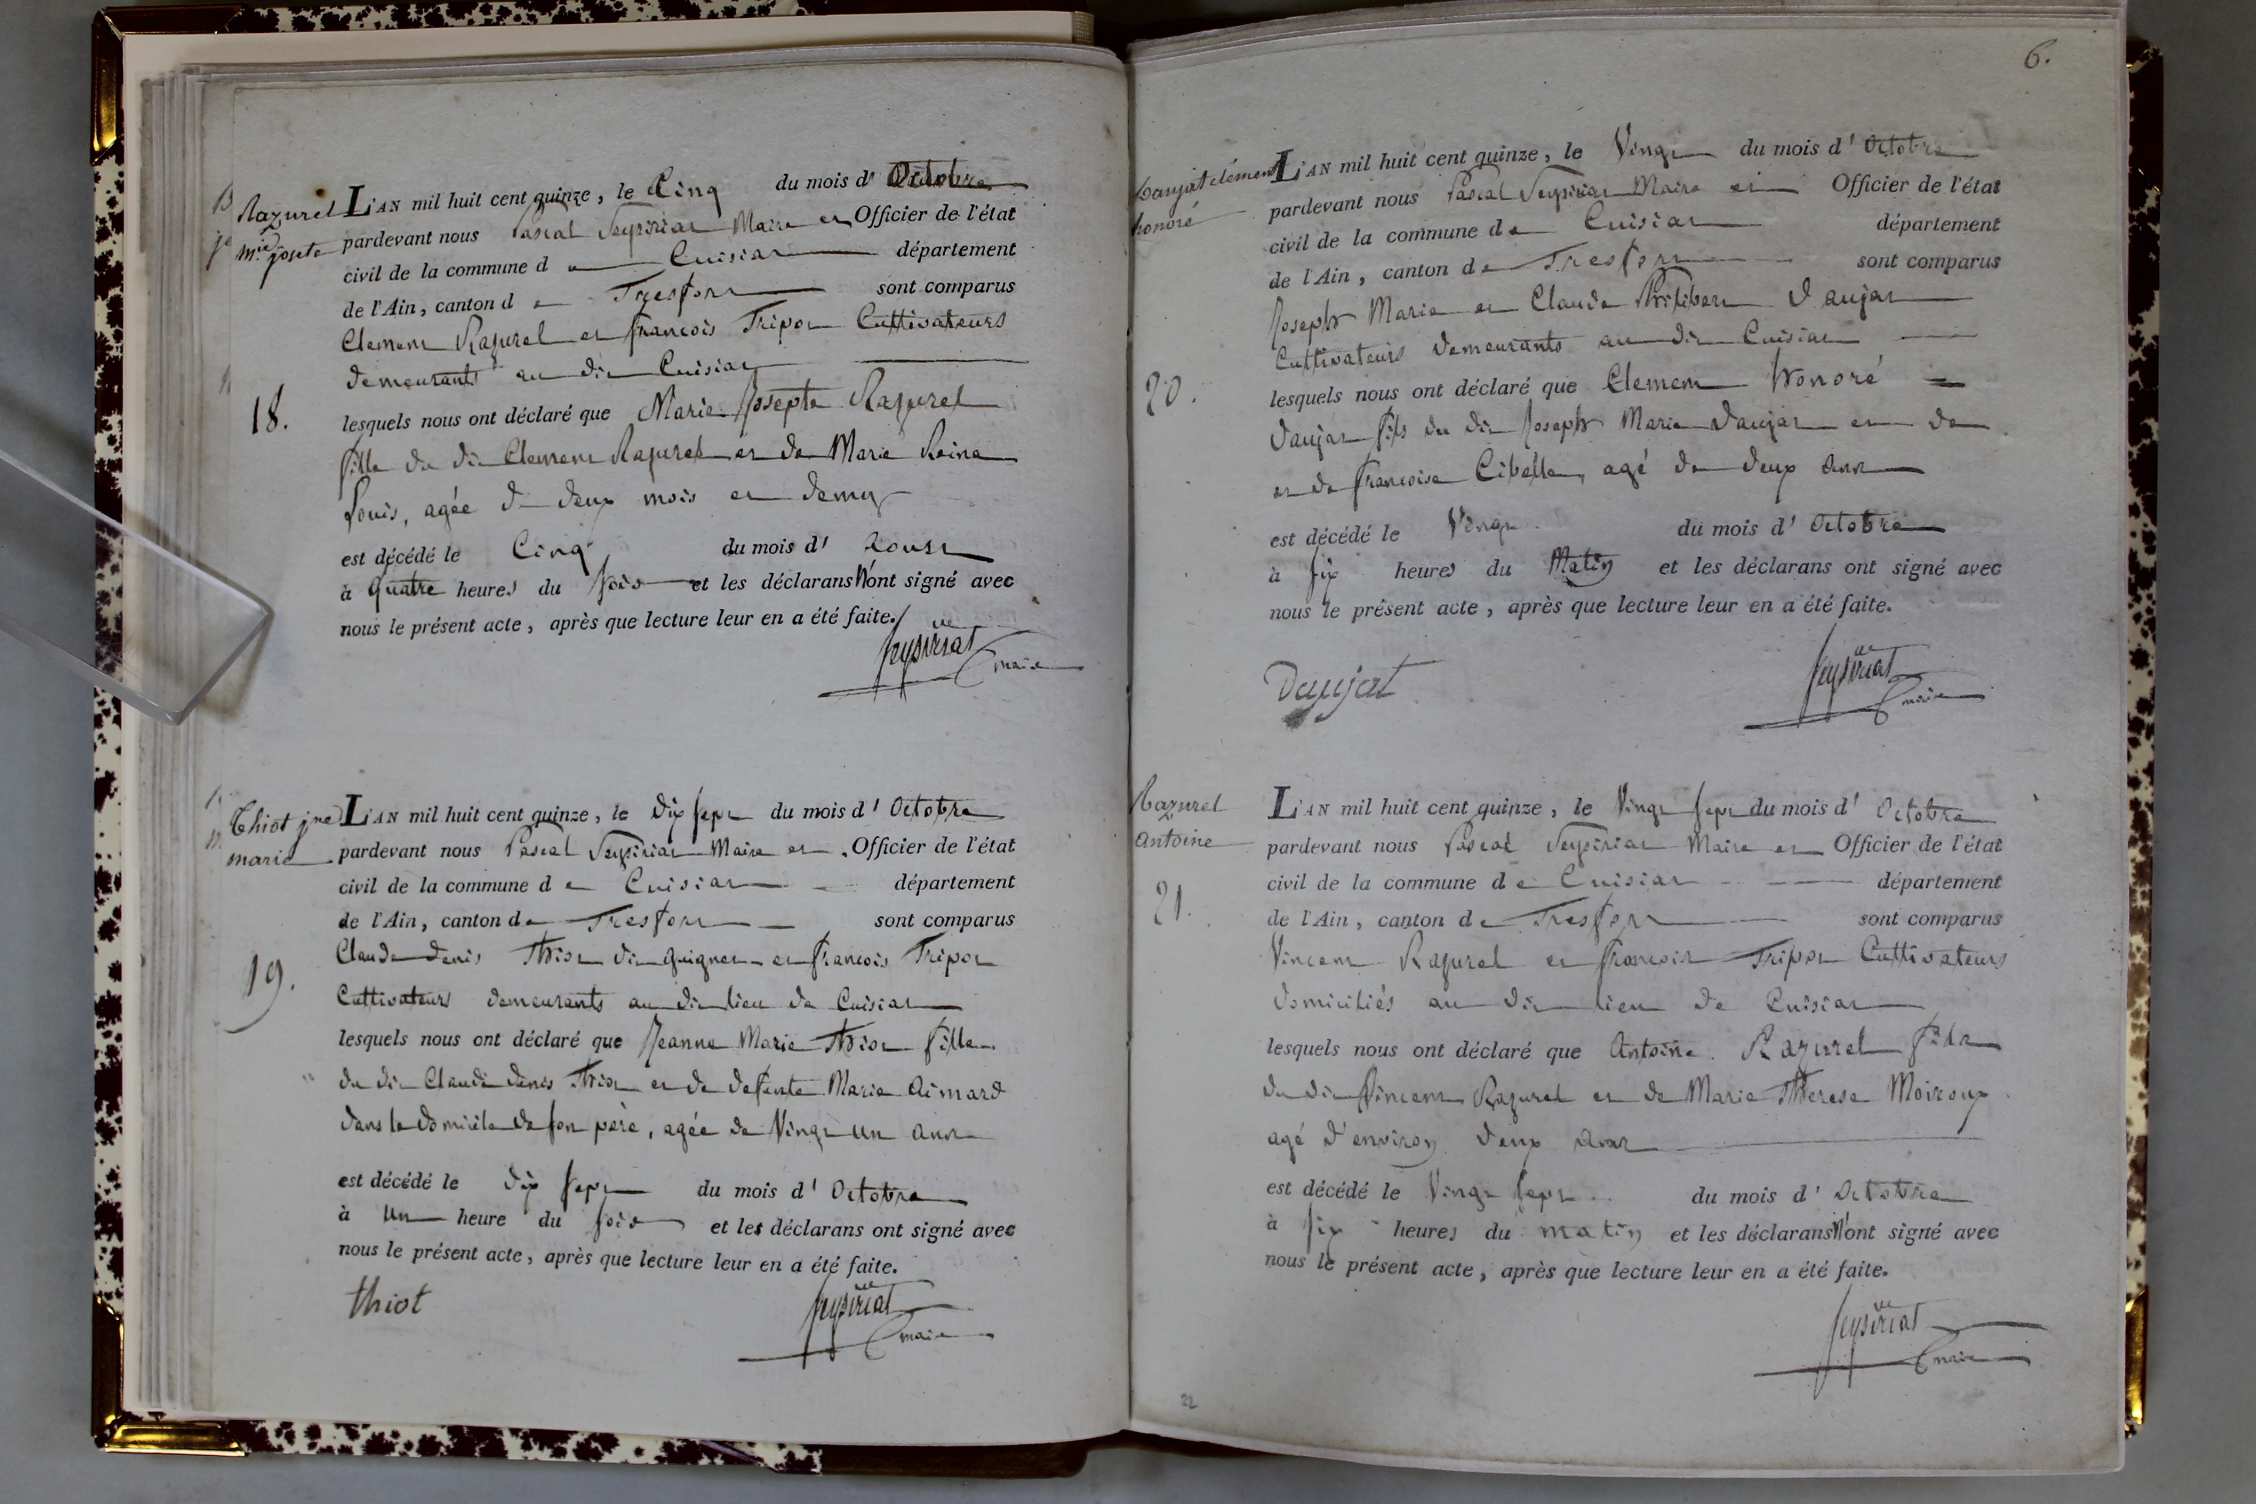 Razurel
Mie josete
18.
L'AN mil huit cent quinze, le Cinq du mois d'Octobre
pardevant nous Pascal Seysiriat Maire et Officier de l'état
civil de la commune de Cuisiat département
de l'Ain, canton de Tresfort sont comparus
Clement Razurel et francois Tripot Cultivateurs
demeurants au dit Cuisiat
lesquels nous ont déclaré que Marie Josepte Razurel
fille du dit Clement Razurel et de Marie Reine
Louis, agée de deux mois et demy
est décédé le Cinq du mois d'Aoust
à quatre heures du soir et les déclarans N'ont signé avec
nous le présent acte, après que lecture leur en a été faite.
Seysiriat
maire
Thiot jne
marie
19.
L'AN mil huit cent quinze, le dix sept du mois d'Octobre
pardevant nous Pascal Seysiriat Maire et Officier de l'état
civil de la commune de Cuisiat département
de l'Ain, canton de Tresfort sont comparus
Claude denis Thiot dit guignet et francois Tripot
Cultivateurs demeurants au dit lieu de Cuisiat
lesquels nous ont déclaré que Jeanne Marie Thiot fille
du dit Claude denis Thiot et de defunte Marie Aimard
dans le domicile de son père, agée de Vingt un ans
est décédé le dix sept du mois d'Octobre
à un heure du soir et les déclarans ont signé avec
nous le présent acte, après que lecture leur en a été faite.
thiot
Seysiriat
maire
6.
Daujat clément
honoré
20.
L'AN mil huit cent quinze, le Vingt du mois d'Octobre
pardevant nous Pascal Seysiriat Maire et Officier de l'état
civil de la commune de Cuisiat département
de l'Ain, canton de Tresfort sont comparus
Joseph Marie et Claude Philibert Daujat
Cultivateurs demeurants au dit Cuisiat
lesquels nous ont déclaré que Clement Honoré
Daujat fils du dit Joseph Marie Daujat et de
et de francoise Cibelle, agé de deux ans
est décédé le Vingt du mois d'Octobre
à six heures du Matin et les déclarans ont signé avec
nous le présent acte, après que lecture leur en a été faite.
Daujat
Seysiriat
maire
Razurel
Antoine
21.
L'AN mil huit cent quinze, le Vingt sept du mois d'Octobre
pardevant nous Pascal Seysiriat Maire et Officier de l'état
civil de la commune de Cuisiat département
de l'Ain, canton de Tresfort sont comparus
Vincent Razurel et francois Tripot Cultivateurs
domiciliés au dit lieu de Cuisiat
lesquels nous ont déclaré que Antoine Razurel fils
du dit Vincent Razurel et de Marie Therese Moiroux
agé d'environ deux ans
est décédé le Vingt sept du mois d'Octobre
à six heures du matin et les déclarans N'ont signé avec
nous le présent acte, après que lecture leur en a été faite.
Seysiriat
maire
22